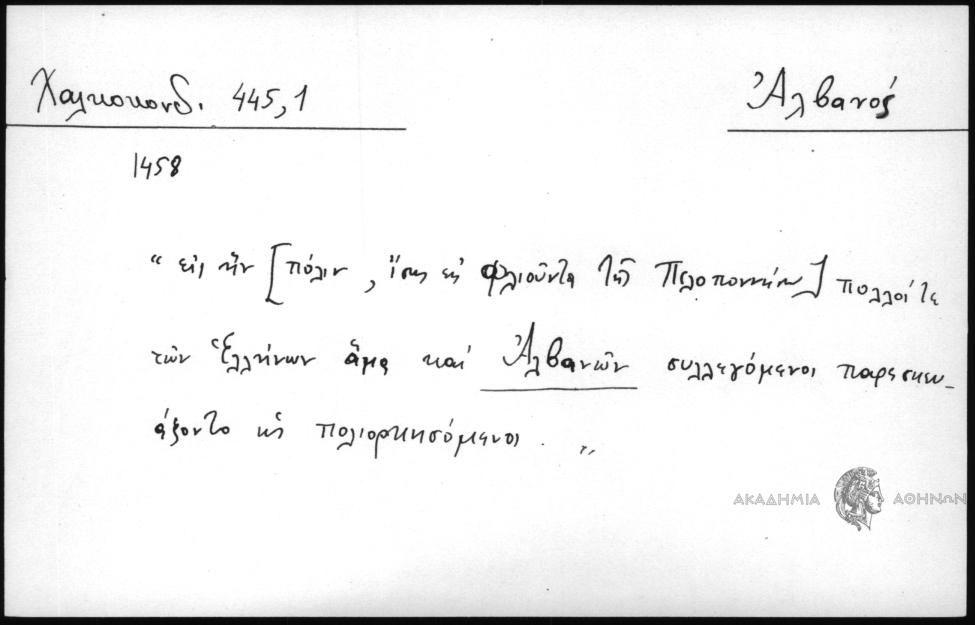 Χαλκοκονδ. 445,1
Ἀλβανός
1458
“ εἰς ἣν [πόλιν, ἴσως εἰς Φλιοῦντα τῆς Πελοποννήσου] πολλοί τε
τῶν Ἑλλήνων ἅμα καὶ Ἀλβανῶν συλλεγόμενοι παρεσκευ-
άζοντο ὡς πολιορκησόμενοι . „
ΑΚΑΔΗΜΙΑ ΑΘΗΝΩΝ